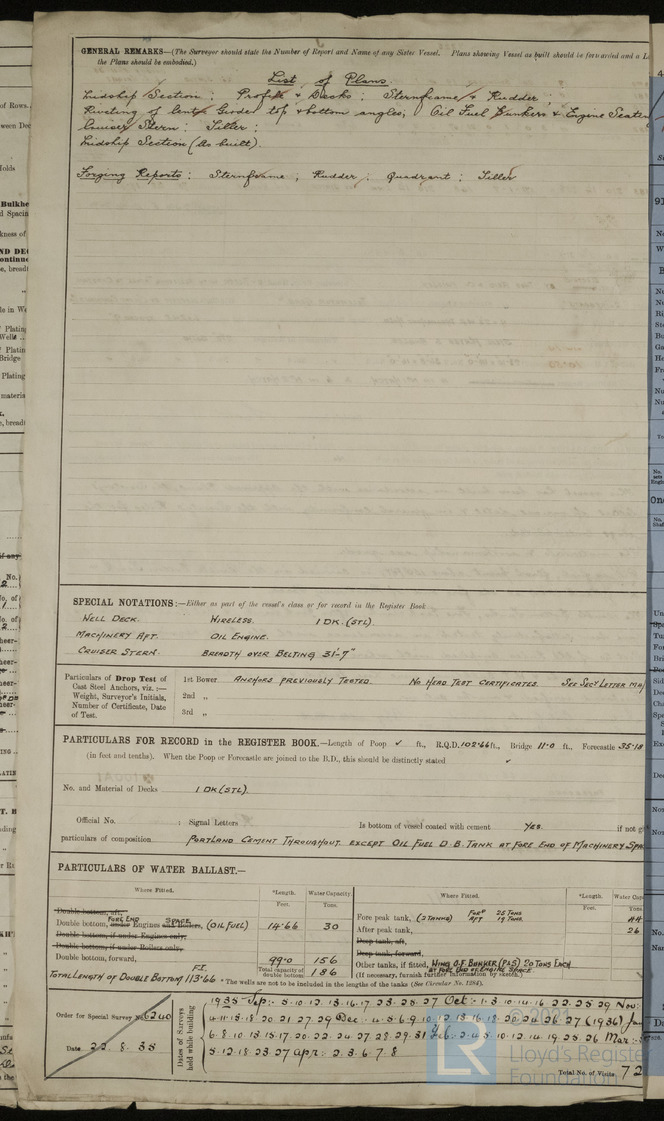 GENERAL REMARKS—(The Surveyor should state the Number of Report and Name of any Sister Vessel. Plans showing Vessel as built should be forwarded and a
the Plans should be embodied.)
List of Plans
Midship Section : Profile & Decks : Sternframe & Rudder :
Riveting of Centre Girder top & bottom angles; Oil Fuel Bunkers & Engine Seating
Cruiser Stern : Tiller :
Midship Section (As built).
Forging Reports : Sternframe ; Rudder ; Quadrant ; Tiller
SPECIAL NOTATIONS:—Either as part of the vessel's class or for record in the Register Book
WELL DECK. WIRELESS. 1 DK. (STL).
MACHINERY AFT. OIL ENGINE.
CRUISER STERN. BREADTH OVER BELTING 31'-7"
Particulars of Drop Test of
Cast Steel Anchors, viz. :—
Weight, Surveyor's Initials,
Number of Certificate, Date
of Test.
1st Bower ANCHORS PREVIOUSLY TESTED. NO HEAD TEST CERTIFICATES. SEE SECY LETTER
2nd „
3rd „
PARTICULARS FOR RECORD in the REGISTER BOOK.—Length of Poop ✓ ft., R.Q.D. 102·66 ft., Bridge 11·0 ft., Forecastle 35·18
(in feet and tenths). When the Poop or Forecastle are joined to the B.D., this should be distinctly stated ✓
No. and Material of Decks 1 DK (STL).
Official No. ; Signal Letters Is bottom of vessel coated with cement YES. if not
particulars of composition PORTLAND CEMENT THROUGHOUT. EXCEPT OIL FUEL D.B. TANK AT FORE END OF MACHINERY
PARTICULARS OF WATER BALLAST.—
Where Fitted. *Length. Water Capacity Where Fitted. *Length. Water
Feet. Tons. Feet. Tons
Double bottom, aft,
Double bottom, under FORE END Engines and Boilers, SPACE (OIL FUEL) 14·66 30
Double bottom, if under Engines only,
Double bottom, if under Boilers only,
Double bottom, forward, 99·0 156
TOTAL LENGTH OF DOUBLE BOTTOM 113·66 Total capacity of double bottom 186
Fore peak tank, (2 TANKS) FORD 25 TONS AFT 19 TONS 44
After peak tank, 26
Deep tank, aft,
Deep tank, forward,
Other tanks, if fitted, WING O.F. BUNKER (P&S) 20 TONS EACH
AT FORE END OF ENGINE SPACE.
(If necessary, furnish further information by sketch.)
* The wells are not to be included in the lengths of the tanks (See Circular No. 1284).
Order for Special Survey No. 6240
Date 22. 8. 35
Dates of Surveys held while building
1935 Sep: 5. 10. 12. 13. 16. 17. 23. 25. 27 Oct: 1. 3. 10. 14. 16. 22. 25. 29 Nov:
4. 11. 13. 18. 20. 21. 27. 29 Dec: 4. 5. 6. 9. 10. 12. 13. 16. 18. 20. 24. 26. 27 (1936) Jan
6. 8. 10. 13. 15. 17. 20. 22. 24. 27. 28. 29. 31 Feb: 2. 4. 5. 10. 12. 14. 19. 25. 26 Mar:
5. 12. 18. 23. 27 apr: 2. 3. 6. 7. 8
Total No. of Visits 72
© 2021
Lloyd's Register
Foundation